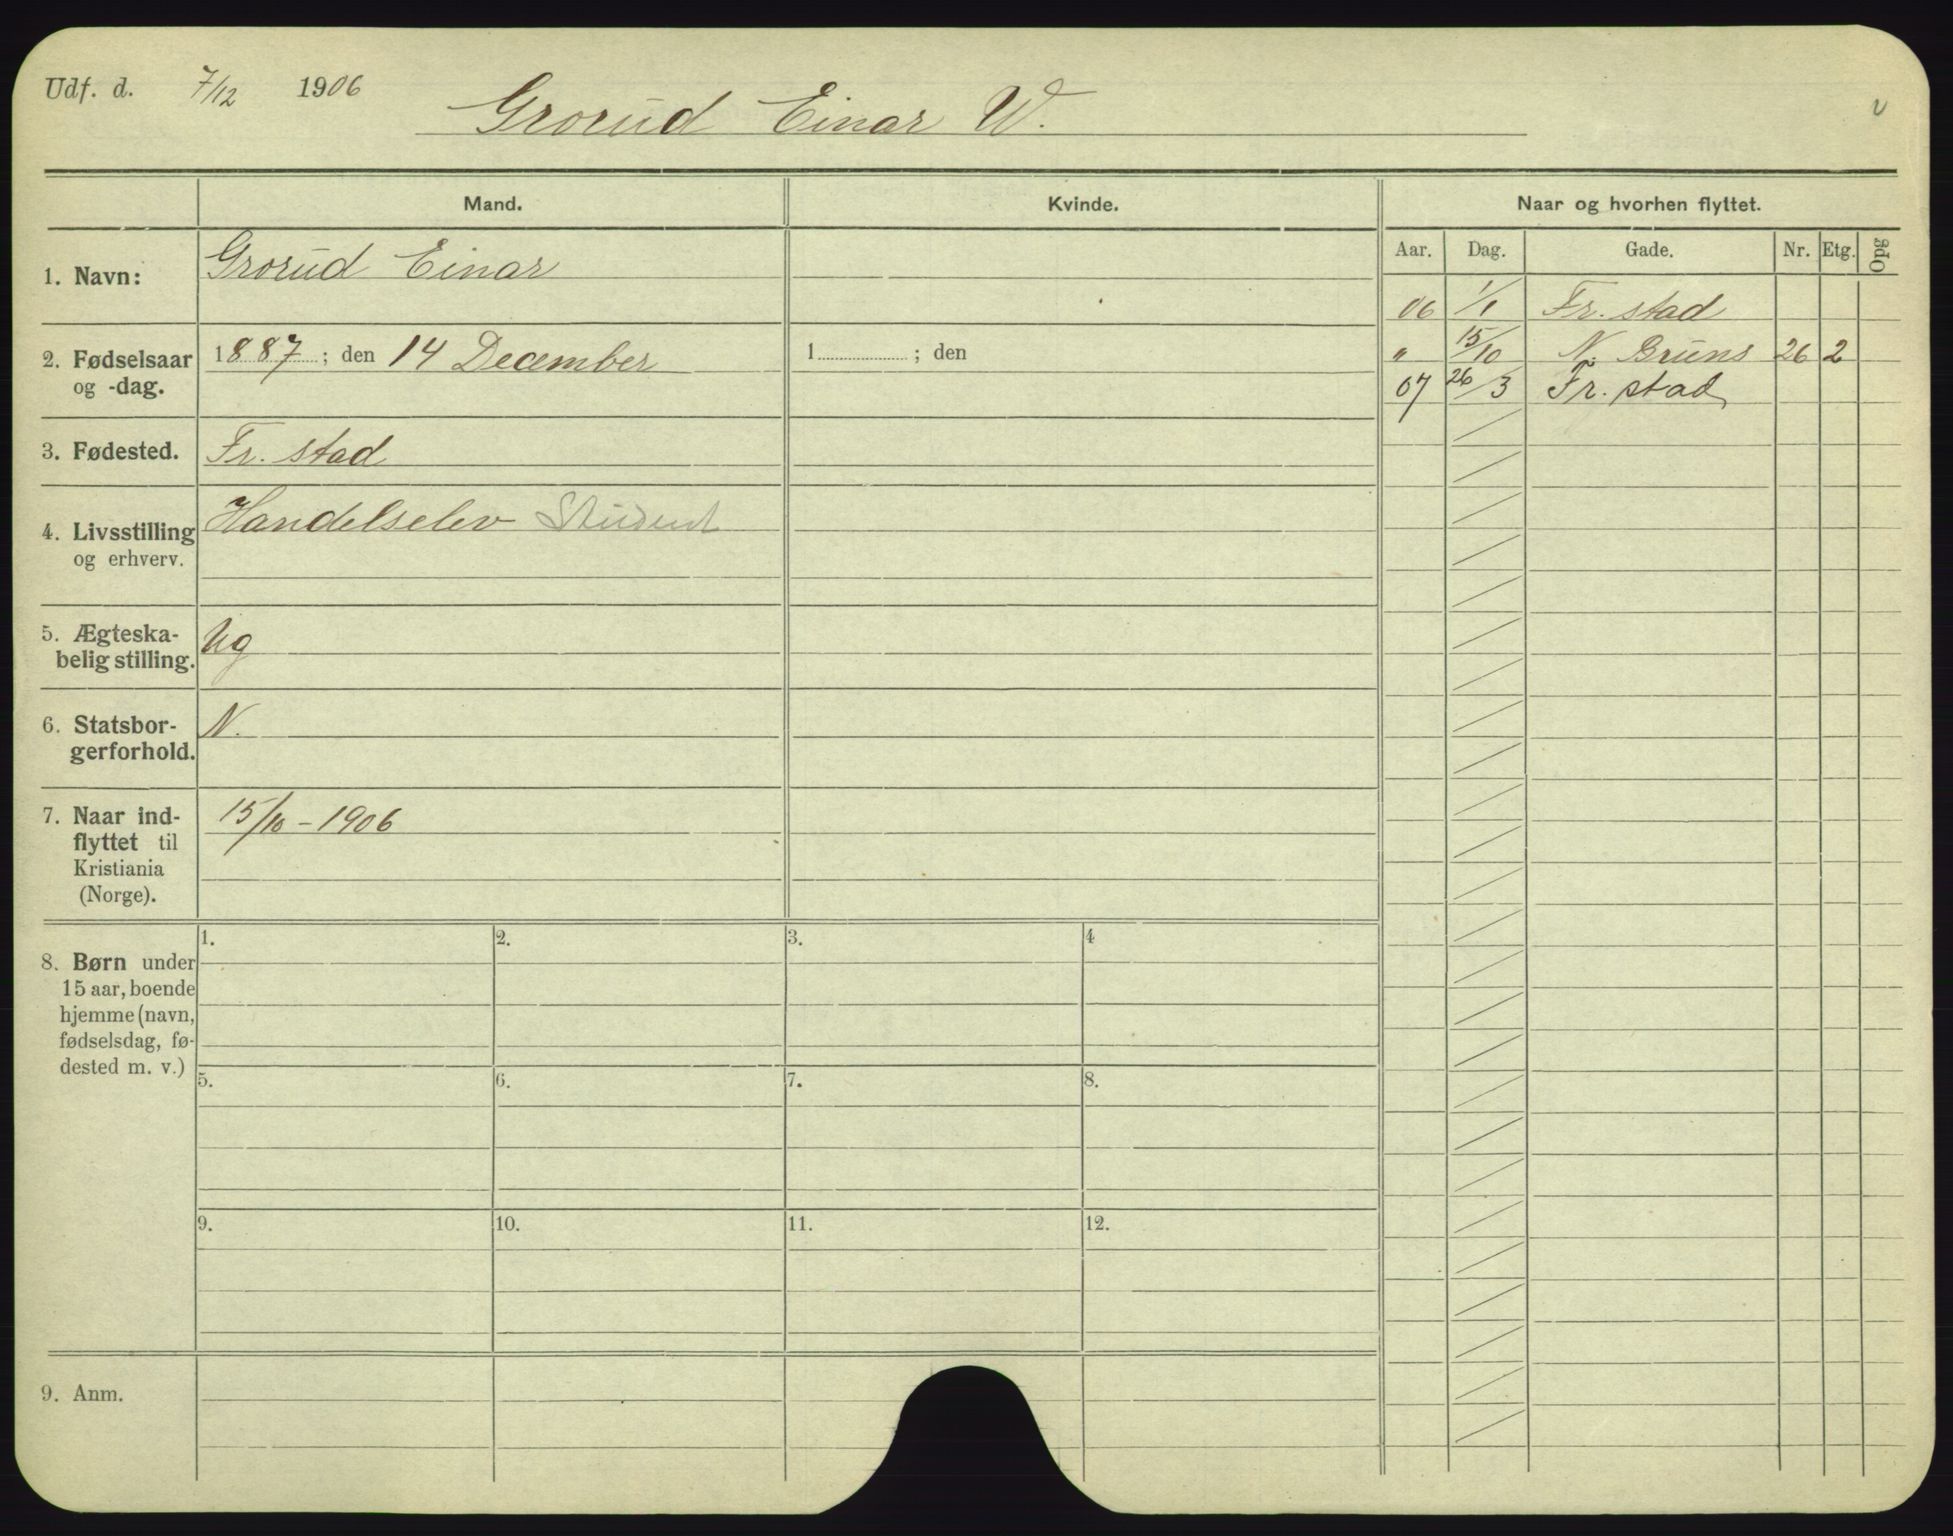 Udf. d. 7/12 1906
Grorud Einar W.
Mand.
Kvinde.
Naar og hvorhen flyttet.
Aar. Dag. Gade. Nr. Etg. Opg
1. Navn: Grorud Einar
06 1/1 Fr. stad
2. Fødselsaar og -dag. 1887; den 14 December
1 ; den
" 15/10 N. Bruns 26 2
07 26/3 Fr. stad
3. Fødested. Fr. stad
4. Livsstilling og erhverv. Handelselev Student
5. Ægteska-
belig stilling. Ug
6. Statsbor-
gerforhold. N.
7. Naar ind-
flyttet til
Kristiania
(Norge).
15/10 - 1906
8. Børn under
15 aar, boende
hjemme (navn,
fødselsdag, fø-
dested m. v.)
1. 2. 3. 4
5. 6. 7. 8.
9. 10. 11. 12.
9. Anm.